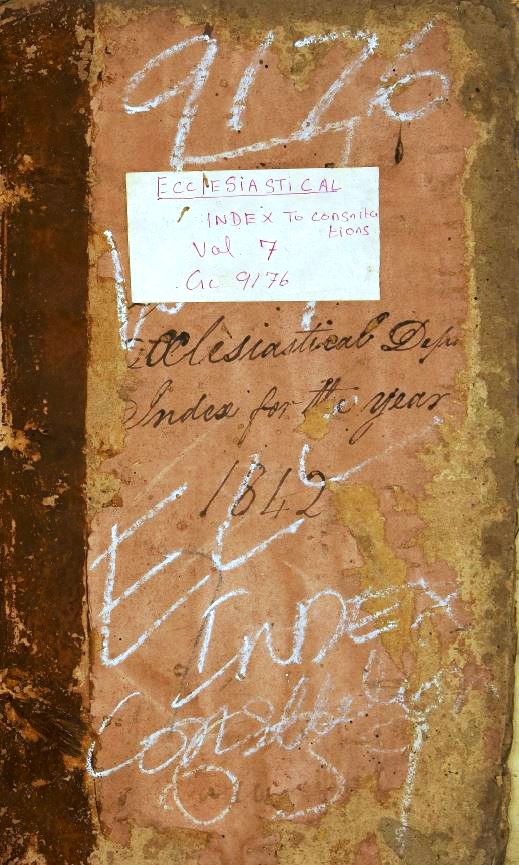 9176
ECCLESIASTICAL
INDEX To Consnlta
tions
Vol. 7
Gc 9176
Ecclesiastical Dep
Index for the year
1842
EC
INDEX